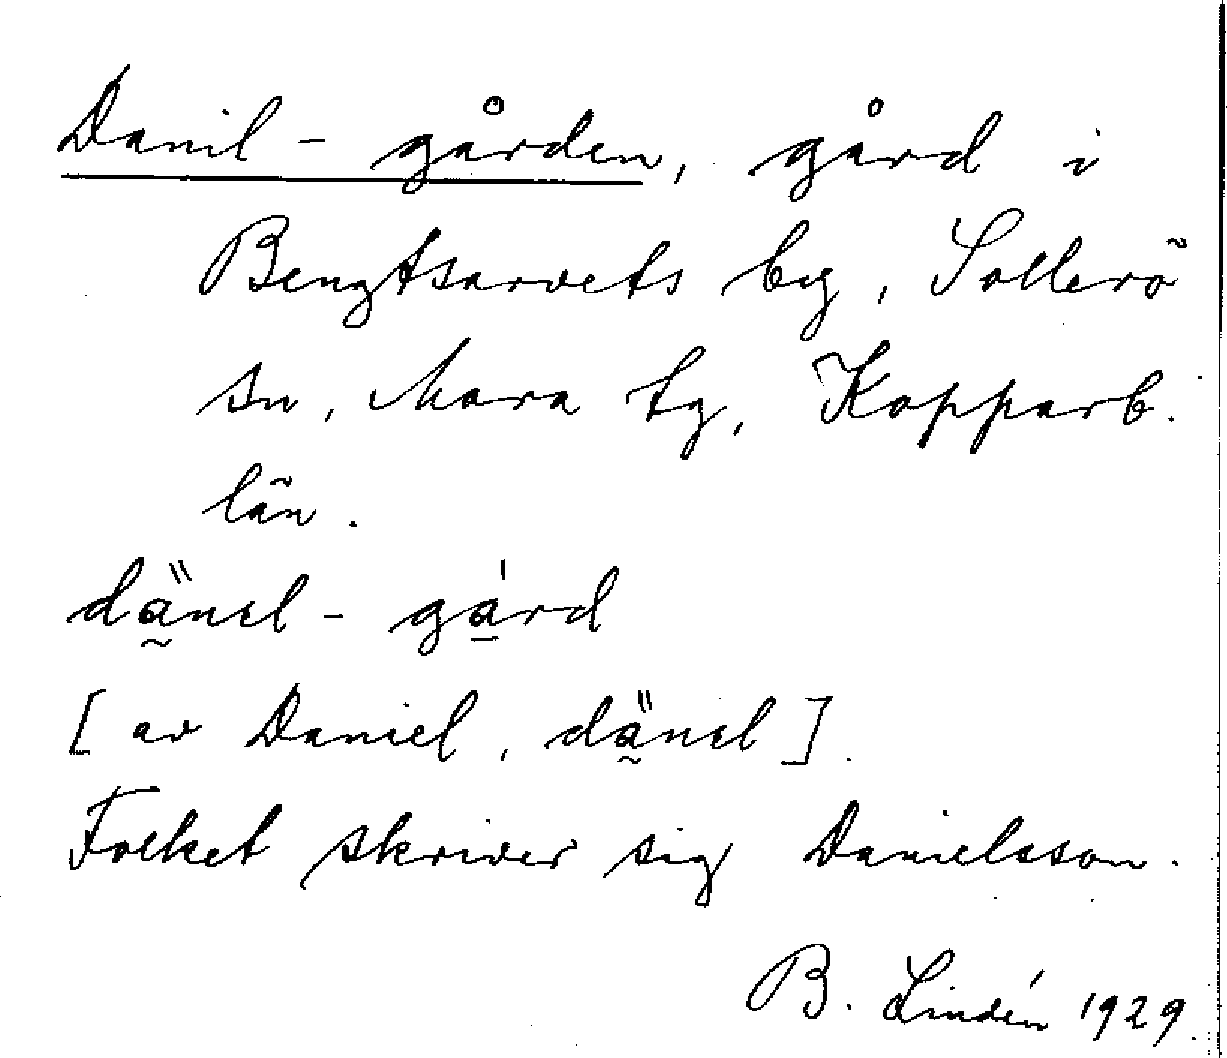 Danil - gården, gård i
Bengtsarvets by, Sollerö
sn, Mora tg, Kopparb.
län.
dänel - gård
[av Daniel, dänel].
Folket skriver sig Danielsson.
B. Lindén 1929.